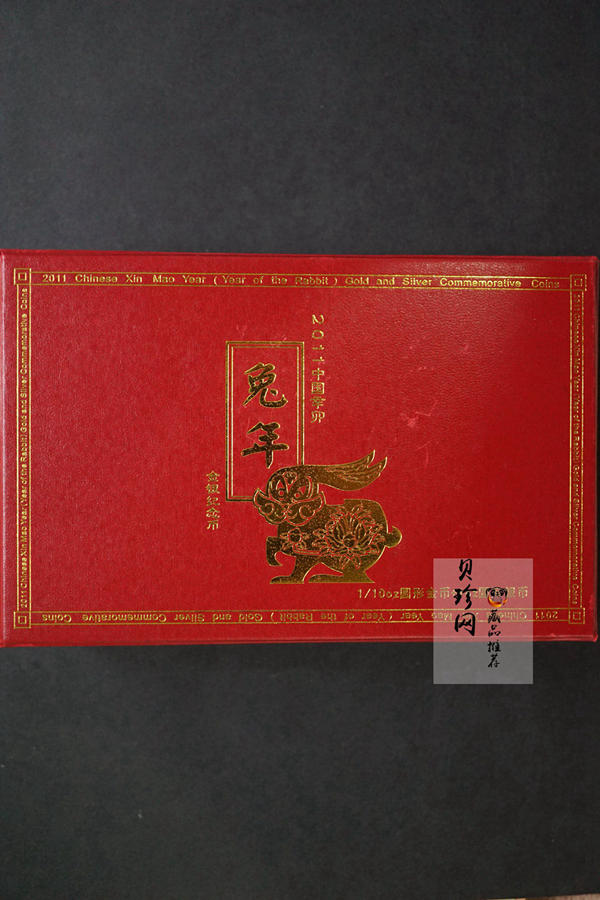 2011 Chinese Xin Mao Year (Year of the Rabbit) Gold and Silver Commemorative Coins
2011 Chinese Xin Mao Year (Year of the Rabbit) Gold and Silver Commemorative Coins
2011中国辛卯
兔年
金银纪念币
1/10oz圆形金币
币
2011 Chinese Xin Mao Year (Year of the Rabbit) Gold and Silver Commemorative Coins
2011 Chin
Mao Year (Year of the Rabbit) Gold and Silver Commemorative Coins
贝珍网
藏品推荐